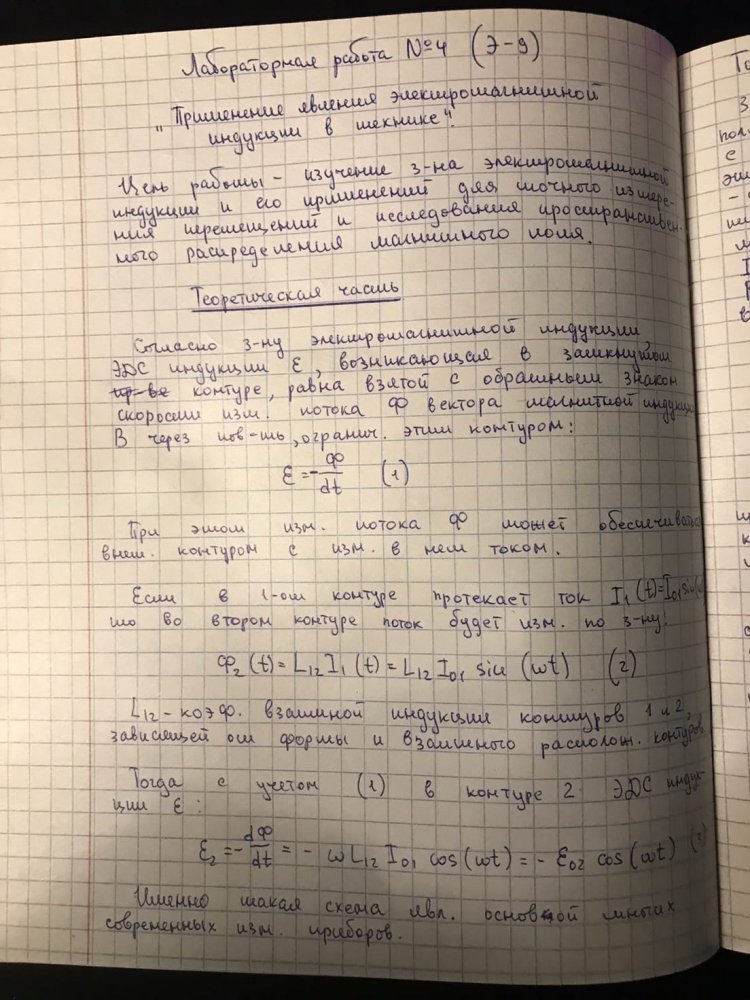 Лабораторная работа №4 (Э-9)
"Применение явления электромагнитной
индукции в технике".
Цель работы - изучение з-на электромагнитной
индукции и его применений для точного измере-
ния перемещений и исследования пространствен-
ного распределения магнитного поля.
Теоретическая часть
Согласно з-ну электромагнитной индукции
ЭДС индукции ε, возникающая в замкнутом
контуре, равна взятой с обратным знаком
скорости изм. потока Ф вектора магнитной индукции
В через пов-ть, огранич. этим контуром:
ε = - Ф/dt (1)
При этом изм. потока Ф может обеспечиваться
внеш. контуром с изм. в нем током.
Если в 1-ом контуре протекает ток I₁(t)=I₀₁sin(ω
то во втором контуре поток будет изм. по з-ну:
Ф₂(t) = L₁₂I₁(t) = L₁₂I₀₁ sin (ωt) (2)
L₁₂ - коэф. взаимной индукции контуров 1 и 2,
зависящей от формы и взаимного располож. контуров.
Тогда с учетом (1) в контуре 2 ЭДС индук-
ции ε:
ε₂ = - dФ/dt = - ωL₁₂I₀₁ cos(ωt) = - ε₀₂ cos(ωt) (3)
Именно такая схема явл. основой многих
современных изм. приборов.
То
З
пол
с